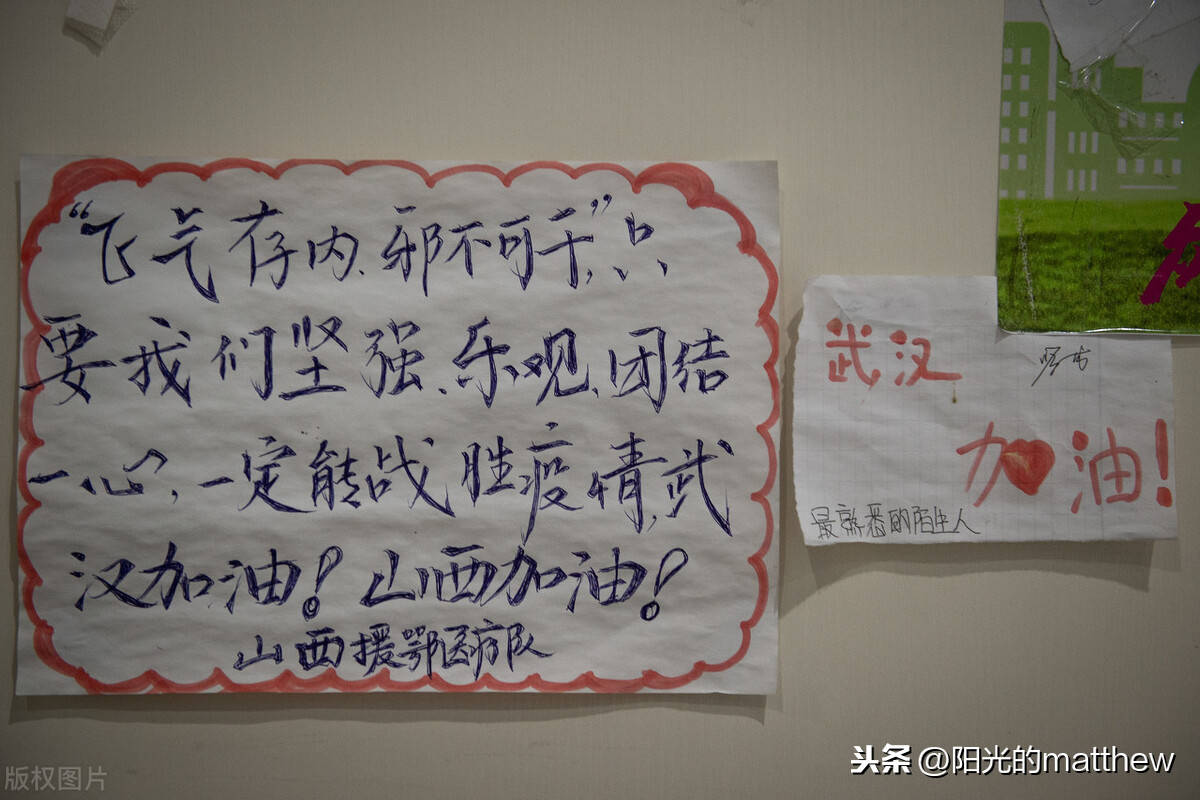 “飞气存内、邪不可干”，只
要我们坚强、乐观、团结
一心，一定能战胜疫情，武
汉加油！山西加油！
山西援鄂医疗队
武汉
加油！
最熟悉的陌生人
版权图片
头条 @阳光的matthew